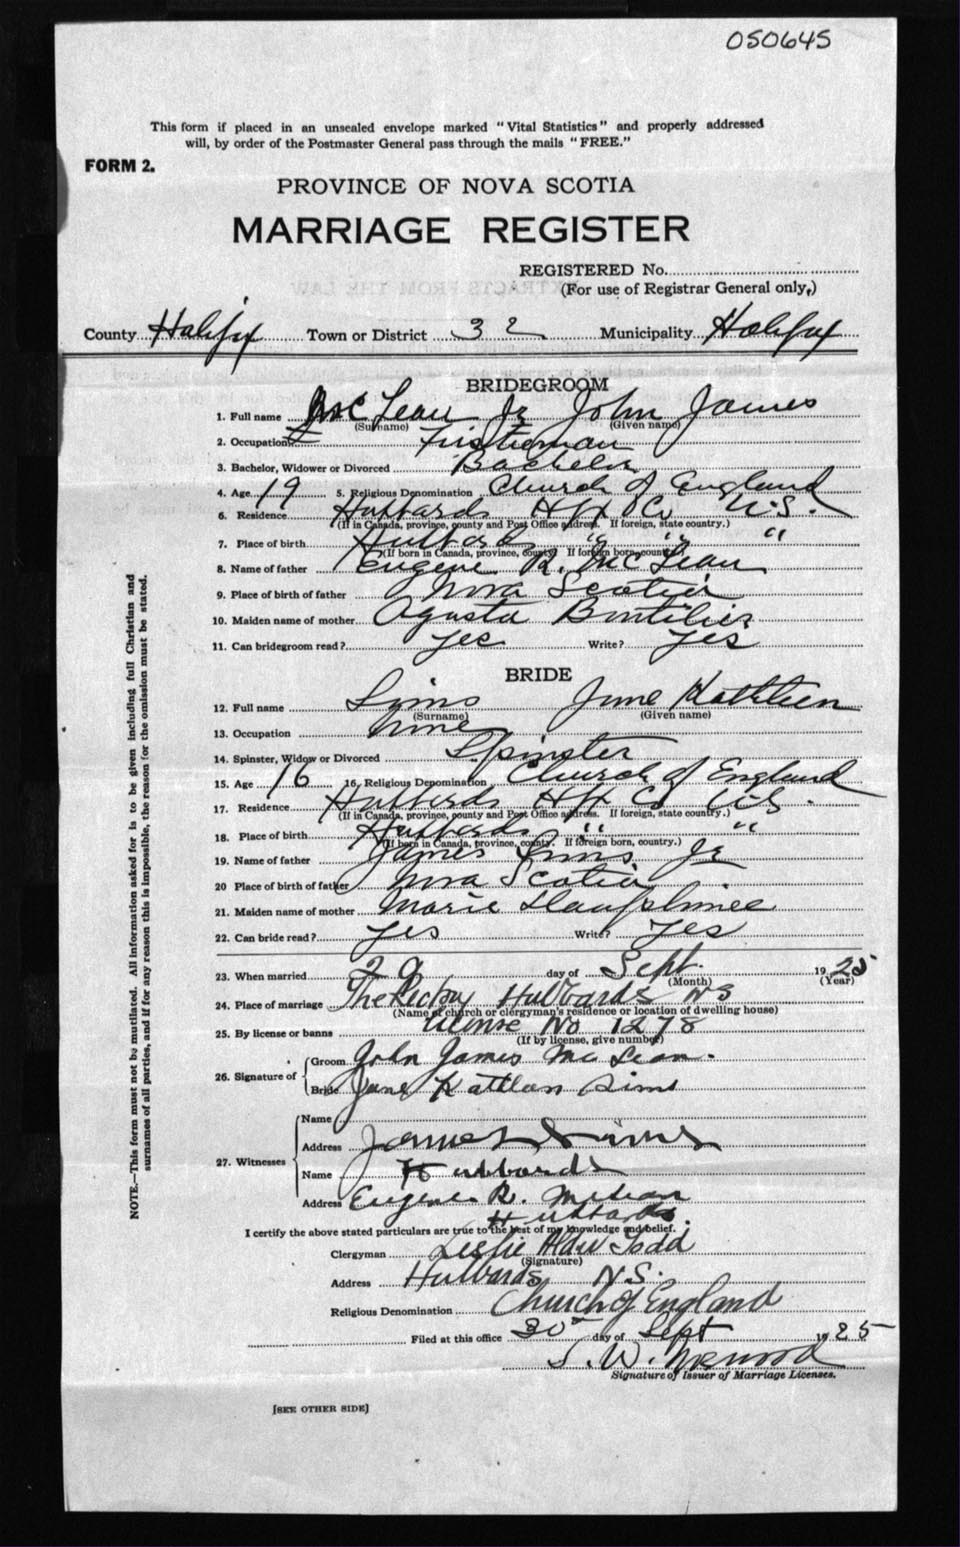 050645
This form if placed in an unsealed envelope marked "Vital Statistics" and properly addressed
will, by order of the Postmaster General pass through the mails "FREE."
FORM 2.
PROVINCE OF NOVA SCOTIA
MARRIAGE REGISTER
REGISTERED No.
(For use of Registrar General only,)
County Halifax Town or District 32 Municipality Halifax
BRIDEGROOM
1. Full name McLean Jr John James
(Surname) (Given name)
2. Occupation Fisherman
3. Bachelor, Widower or Divorced Bachelor
4. Age 19 5. Religious Denomination Church of England
6. Residence Hubbards Hfx Co N.S.
(If in Canada, province, county and Post Office address. If foreign, state country.)
7. Place of birth Hubbards " " "
(If born in Canada, province, county. If foreign born, country.)
8. Name of father Eugene R. McLean
9. Place of birth of father Nova Scotia
10. Maiden name of mother Agusta
11. Can bridegroom read? yes Write? Yes
BRIDE
12. Full name Sims June Kathleen
(Surname) (Given name)
13. Occupation None
14. Spinster, Widow or Divorced Spinster
15. Age 16 16. Religious Denomination Church of England
17. Residence Hubbards Hfx Co N.S.
(If in Canada, province, county and Post Office address. If foreign, state country.)
18. Place of birth Hubbards " "
(If born in Canada, province, county. If foreign born, country.)
19. Name of father James Sims Jr
20 Place of birth of father Nova Scotia
21. Maiden name of mother Marie
22. Can bride read? yes Write? Yes
23. When married 29 day of Sept. 1925
(Month) (Year)
24. Place of marriage The Rectory Hubbards NS
(Name of church or clergyman's residence or location of dwelling house)
25. By license or banns License No 1278
(If by license, give number)
26. Signature of Groom John James McLean.
Bride June Kathleen Sims
27. Witnesses Name
Address James Sims
Name Hubbards
Address Eugene R. McLean
Hubbards
I certify the above stated particulars are true to the best of my knowledge and belief.
Clergyman Leslie Todd
(Signature)
Address Hubbards N.S.
Religious Denomination Church of England
Filed at this office 30 day of Sept 1925
Signature of Issuer of Marriage Licenses.
[SEE OTHER SIDE]
NOTE.—This form must not be mutilated. All information asked for is to be given including full Christian and
surnames of all parties, and if for any reason this is impossible, the reason for the omission must be stated.